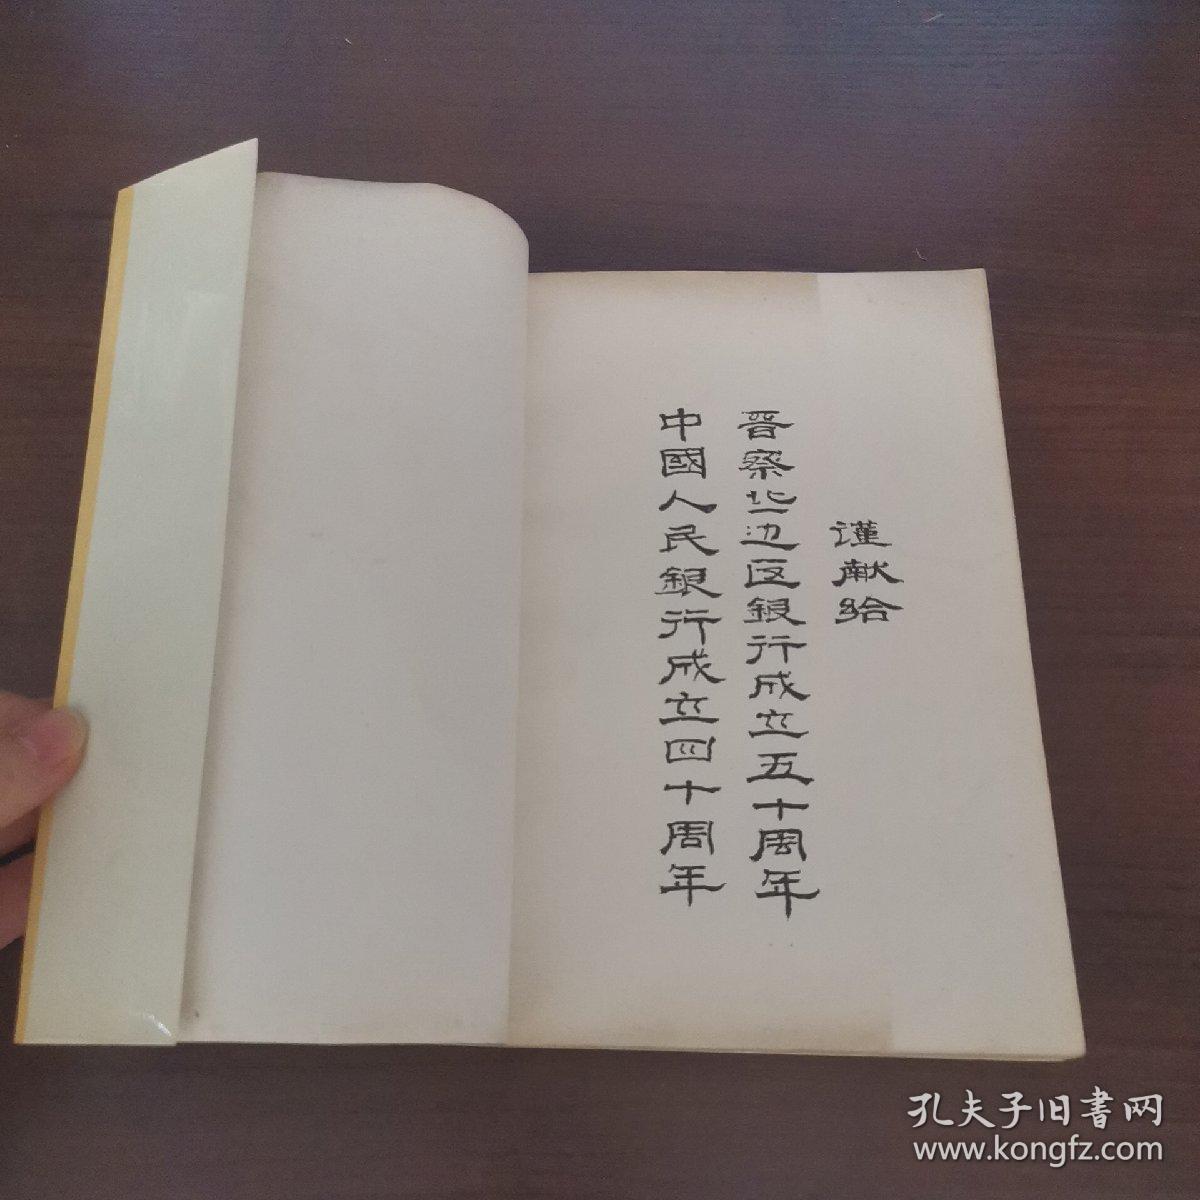 谨献给
晋察北边区银行成立五十周年
中國人民銀行成立四十周年
孔夫子旧書网
www.kongfz.com